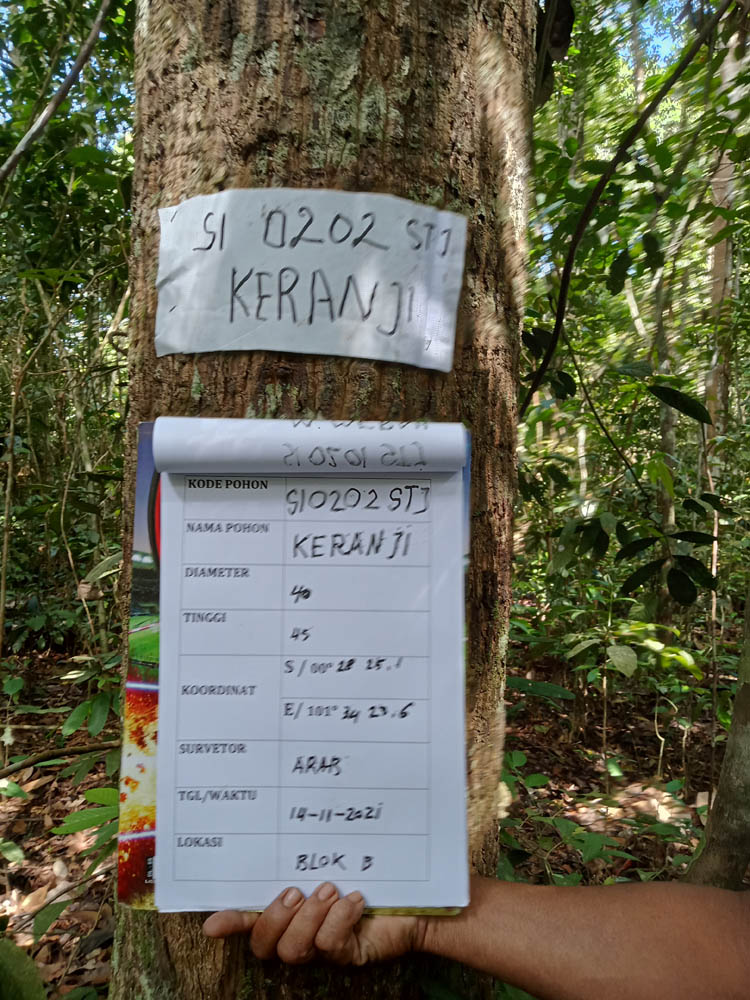 SI 0202 STJ
KERANJI
KODE POHON SI0202 STJ
NAMA POHON KERANJI
DIAMETER 40
TINGGI 45
KOORDINAT S/00° 28 25.1
E/101° 34 23.6
SURVETOR ARAB
TGL/WAKTU 14-11-2021
LOKASI BLOK B